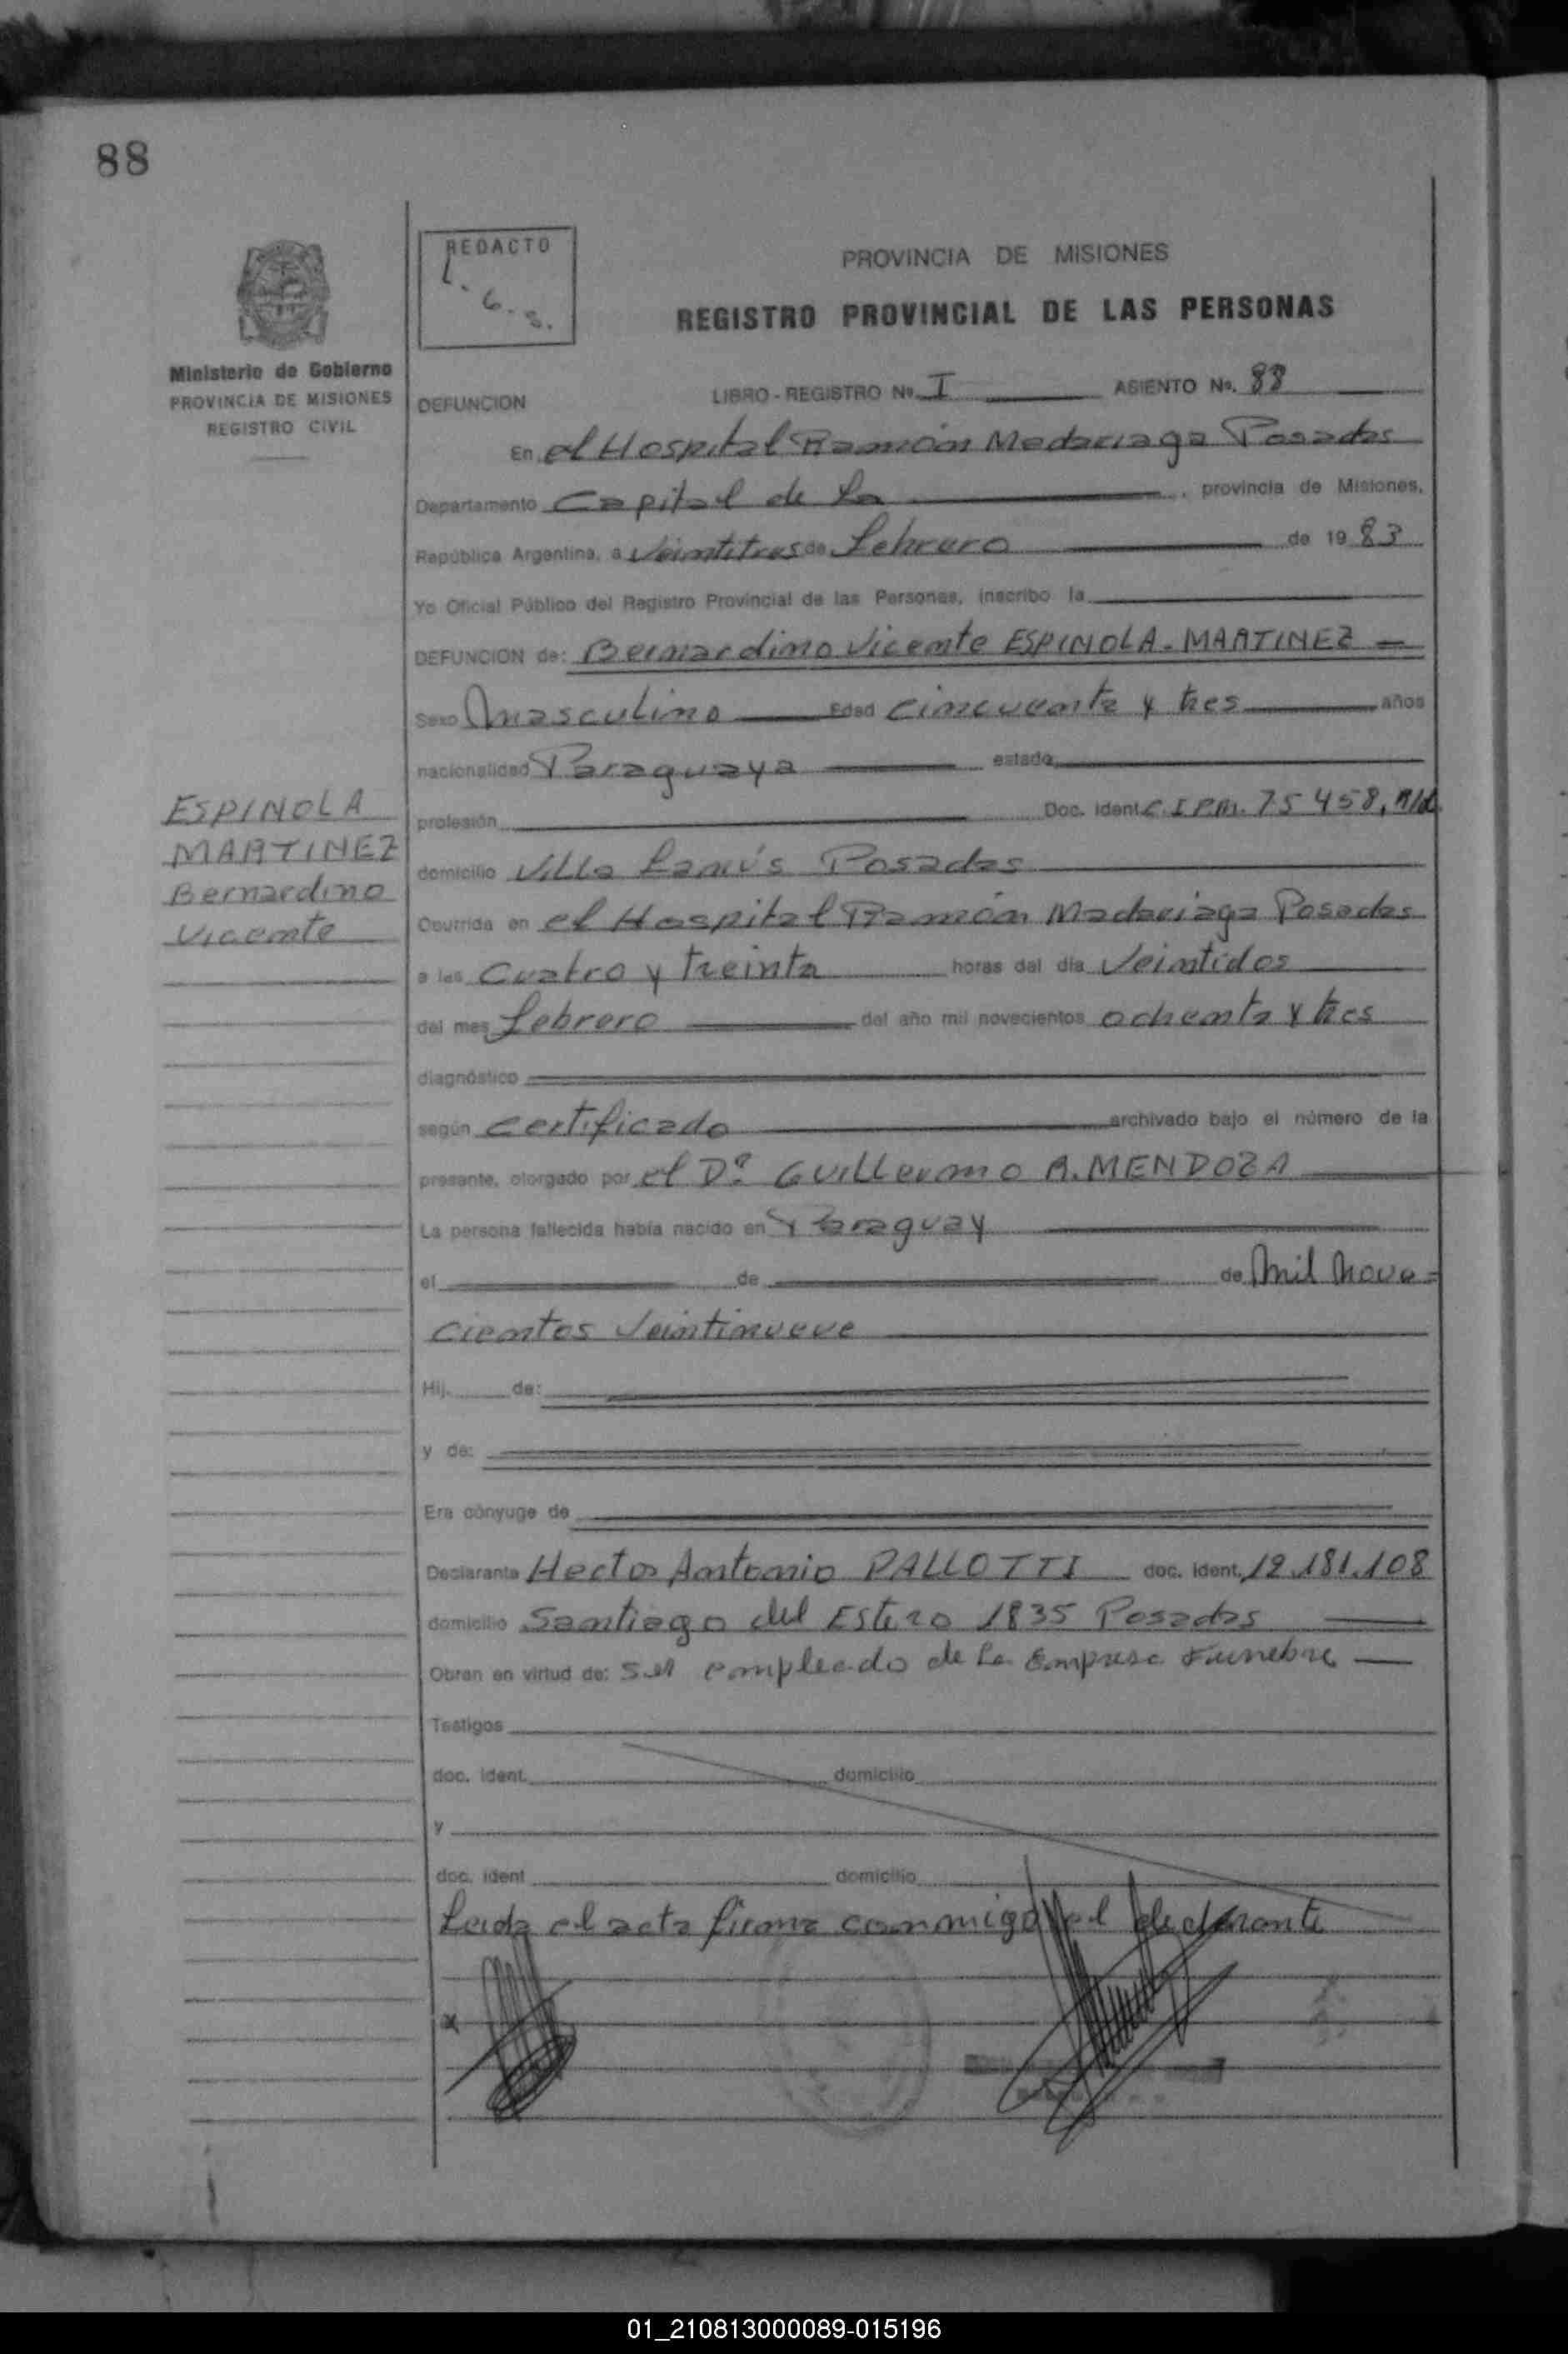 88
REDACTO
PROVINCIA DE MISIONES
REGISTRO PROVINCIAL DE LAS PERSONAS
Ministerio de Gobierno
PROVINCIA DE MISIONES
REGISTRO CIVIL
DEFUNCION LIBRO - REGISTRO No. I ASIENTO No. 88
En el Hospital Ramón Madariaga Posadas
Departamento Capital de La, provincia de Misiones,
República Argentina, a Veintitres de Febrero de 19 83
Yo Oficial Público del Registro Provincial de las Personas, inscribo la
DEFUNCION de: Bernardino Vicente ESPINOLA - MARTINEZ
Sexo Masculino Edad cincuenta y tres años
nacionalidad Paraguaya estado
profesión Doc. Ident. C.I.P.M. 75 458,
ESPINOLA
MARTINEZ
Bernardino
Vicente
domicilio Villa Lanús Posadas
Ocurrida en el Hospital Ramón Madariaga Posadas
a las Cuatro y treinta horas del día Veintidos
del mes Febrero del año mil novecientos ochenta y tres
diagnóstico
según certificado archivado bajo el número de la
presente, otorgado por el Dr. Guillermo A. MENDOZA
La persona fallecida había nacido en Paraguay
el de de Mil Nove=
cientos Veintinueve
Hij. de:
y de:
Era cónyuge de
Declarante Hector Antonio PALLOTTI doc. ident. 12.181.108
domicilio Santiago del Estero 1835 Posadas
Obran en virtud de: ser empleado de La Empresa Funebre
Testigos
doc. ident. domicilio
y
doc. ident domicilio
Leida el acta firma conmigo el declarante
x
01_210813000089-015196